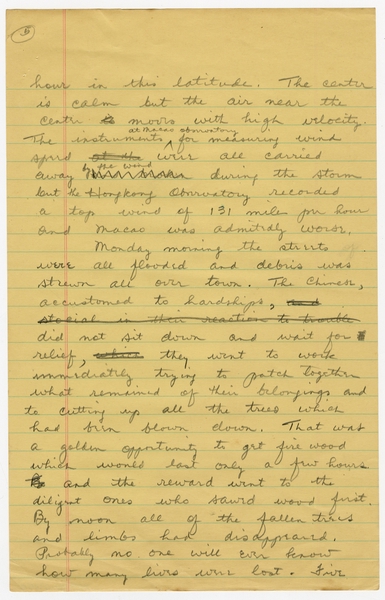 5
hour in this latitude. The center
is calm but the air near the
centre moves with high velocity.
at Macao observatory
The instruments for measuring wind
speed were all carried
by the wind
away during the storm
but the Hongkong Observatory recorded
a top wind of 131 miles per hour
and Macao was admittedly worse.
Monday morning the streets
were all flooded and debris was
strewn all over town. The Chinese,
accustomed to hardships, and
stocial in their reaction to trouble
did not sit down and wait for
relief, they went to work
immediately trying to patch together
what remained of their belongings and
to cutting up all the trees which
had been blown down. That was
a golden opportunity to get fire wood
which would last only a few hours
and the reward went to the
diligent ones who sawed wood first.
By noon all of the fallen trees
and limbs had disappeared.
Probably no one will ever know
how many lives were lost. Five